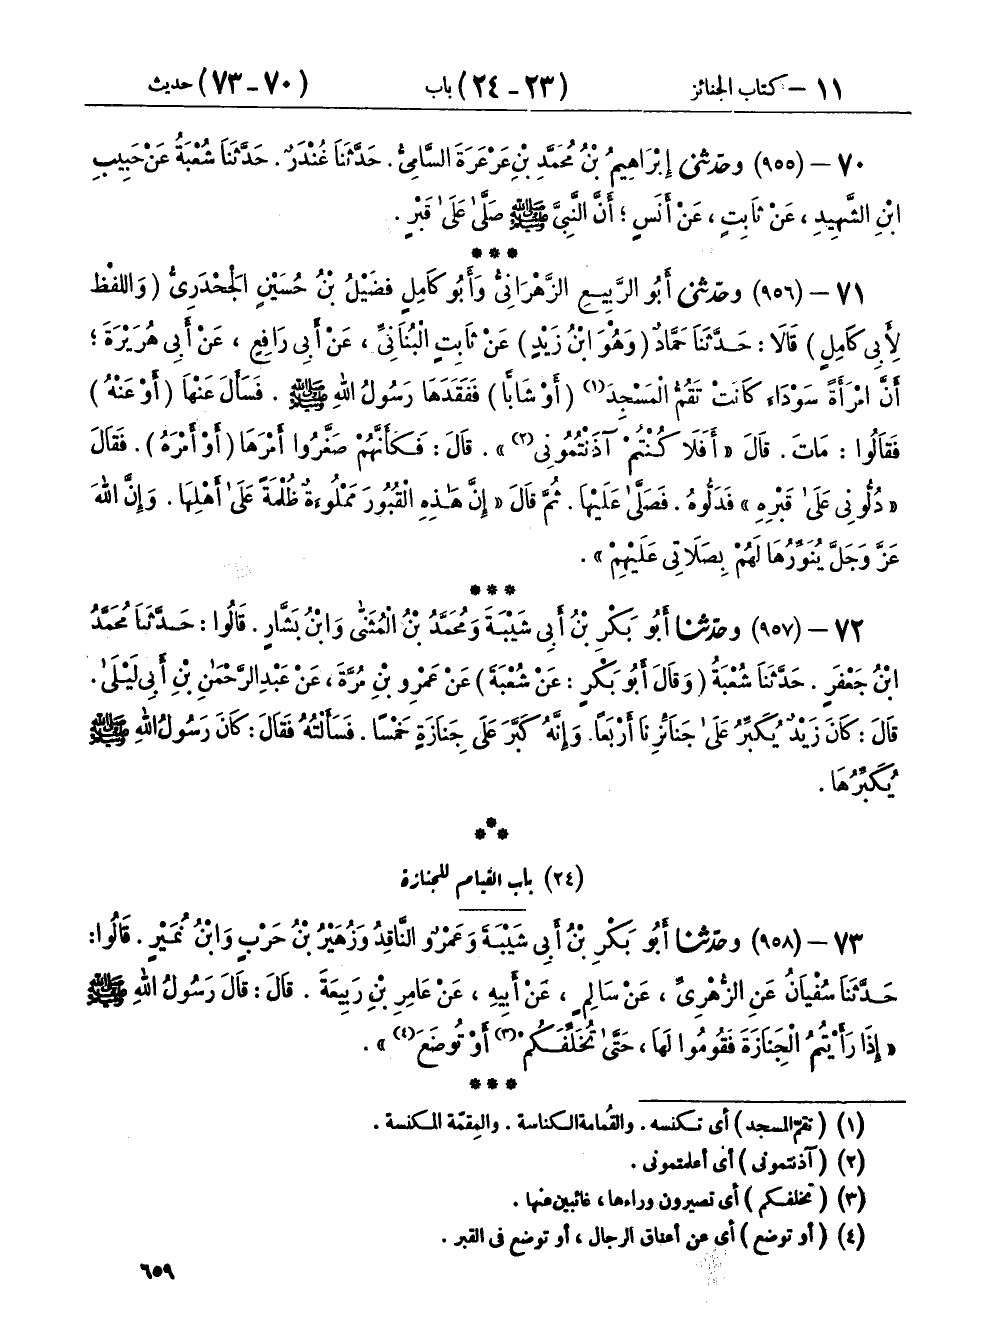 ١١ - كتاب الجنائز (٢٣ - ٢٤) باب (٧٠ - ٧٣) حديث
٧٠ - (٩٥٥) وحدثنى إِبْرَاهِيمُ بْنُ مُحَمَّدِ بْنِ عَرْعَرَةَ السَّامِىُّ . حَدَّثَنَا غُنْدَرٌ . حَدَّثَنَا شُعْبَةُ عَنْ حَبِيبِ
ابْنِ الشَّهِيدِ ، عَنْ ثَابِتٍ ، عَنْ أَنَسٍ ؛ أَنَّ النَّبِيَّ ﷺ صَلَّىٰ عَلَىٰ قَبْرٍ .
* * *
٧١ - (٩٥٦) وحدثنى أَبُو الرَّبِيعِ الزَّهْرَانِىُّ وَأَبُو كَامِلٍ فُضَيْلُ بْنُ حُسَيْنٍ الْجَحْدَرِىُّ ( وَاللَّفْظُ
لِأَبِى كَامِلٍ ) قَالَا : حَدَّثَنَا حَمَّادٌ ( وَهُوَ ابْنُ زَيْدٍ ) عَنْ ثَابِتٍ الْبُنَانِىِّ ، عَنْ أَبِى رَافِعٍ ، عَنْ أَبِى هُرَيْرَةَ ؛
أَنَّ امْرَأَةً سَوْدَاءَ كَانَتْ تَقُمُّ الْمَسْجِدَ (١) ( أَوْ شَابًّا ) فَفَقَدَهَا رَسُولُ اللهِ ﷺ . فَسَأَلَ عَنْهَا ( أَوْ عَنْهُ )
فَقَالُوا : مَاتَ . قَالَ « أَفَلَا كُنْتُمْ آذَنْتُمُونِى (٢) » . قَالَ : فَكَأَنَّهُمْ صَغَّرُوا أَمْرَهَا ( أَوْ أَمْرَهُ ) . فَقَالَ
« دُلُّونِى عَلَىٰ قَبْرِهِ » فَدَلُّوهُ . فَصَلَّىٰ عَلَيْهَا . ثُمَّ قَالَ « إِنَّ هَٰذِهِ الْقُبُورَ مَمْلُوءَةٌ ظُلْمَةً عَلَىٰ أَهْلِهَا . وَإِنَّ اللهَ
عَزَّ وَجَلَّ يُنَوِّرُهَا لَهُمْ بِصَلَاتِى عَلَيْهِمْ » .
* * *
٧٢ - (٩٥٧) وحدثنا أَبُو بَكْرِ بْنُ أَبِى شَيْبَةَ وَمُحَمَّدُ بْنُ الْمُثَنَّىٰ وَابْنُ بَشَّارٍ . قَالُوا : حَدَّثَنَا مُحَمَّدُ
ابْنُ جَعْفَرٍ . حَدَّثَنَا شُعْبَةُ ( وَقَالَ أَبُو بَكْرٍ : عَنْ شُعْبَةَ ) عَنْ عَمْرِو بْنِ مُرَّةَ ، عَنْ عَبْدِ الرَّحْمَٰنِ بْنِ أَبِى لَيْلَىٰ .
قَالَ : كَانَ زَيْدٌ يُكَبِّرُ عَلَىٰ جَنَائِزِنَا أَرْبَعًا . وَإِنَّهُ كَبَّرَ عَلَى جِنَازَةٍ خَمْسًا . فَسَأَلْتُهُ فَقَالَ : كَانَ رَسُولُ اللهِ ﷺ
يُكَبِّرُهَا .
* * *
(٢٤) باب القيام للجنازة
٧٣ - (٩٥٨) وحدثنا أَبُو بَكْرِ بْنُ أَبِى شَيْبَةَ وَعَمْرٌو النَّاقِدُ وَزُهَيْرُ بْنُ حَرْبٍ وَابْنُ نُمَيْرٍ . قَالُوا :
حَدَّثَنَا سُفْيَانُ عَنِ الزُّهْرِىِّ ، عَنْ سَالِمٍ ، عَنْ أَبِيهِ ، عَنْ عَامِرِ بْنِ رَبِيعَةَ . قَالَ : قَالَ رَسُولُ اللهِ ﷺ
« إِذَا رَأَيْتُمُ الْجِنَازَةَ فَقُومُوا لَهَا ، حَتَّىٰ تُخَلِّفَكُمْ (٣) أَوْ تُوضَعَ (٤) » .
* * *
(١) ( تقم المسجد ) أى تكنسه . والقُمامة الكناسة . والمِقمّة المكنسة .
(٢) ( آذنتمونى ) أى أعلمتمونى .
(٣) ( تخلفكم ) أى تصيرون وراءها ، غائبين عنها .
(٤) ( أو توضع ) أى عن أعناق الرجال ، أو توضع فى القبر .
٦٥٩